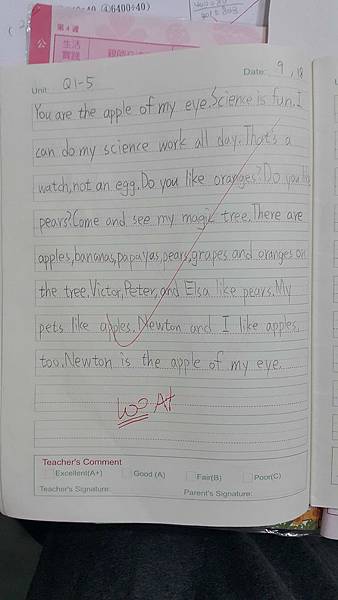 ④6400÷40)
第4週
公 生活
實踐
Unit Q1-5 Date: 9, 18
You are the apple of my eye. Science is fun. I
can do my science work all day. That's a
watch, not an egg. Do you like oranges? Do you like
pears? Come and see my magic tree. There are
apples, bananas, papayas, pears, grapes and oranges on
the tree. Victor, Peter, and Elsa like pears. My
pets like apples. Newton and I like apples,
too. Newton is the apple of my eye.
100 A+
Teacher's Comment
Excellent(A+) Good (A) Fair(B) Poor(C)
Teacher's Signature: Parent's Signature: